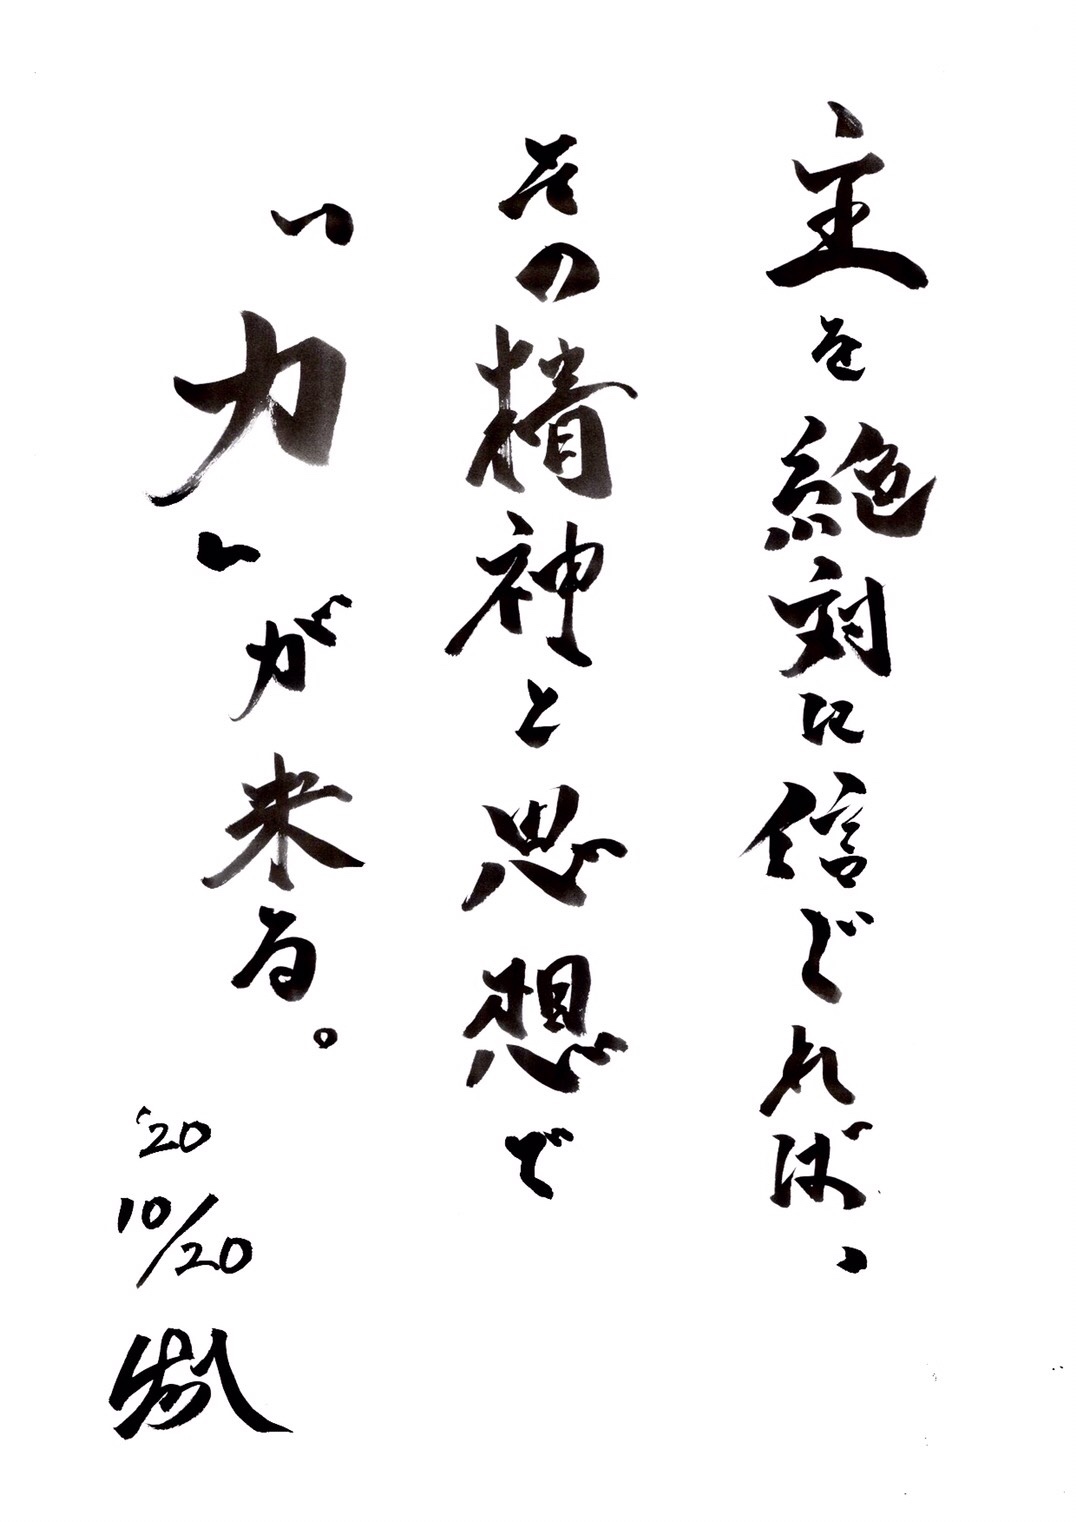 主を絶対に信じれば、
その精神と思想で
“力”が来る。
'20
10/20